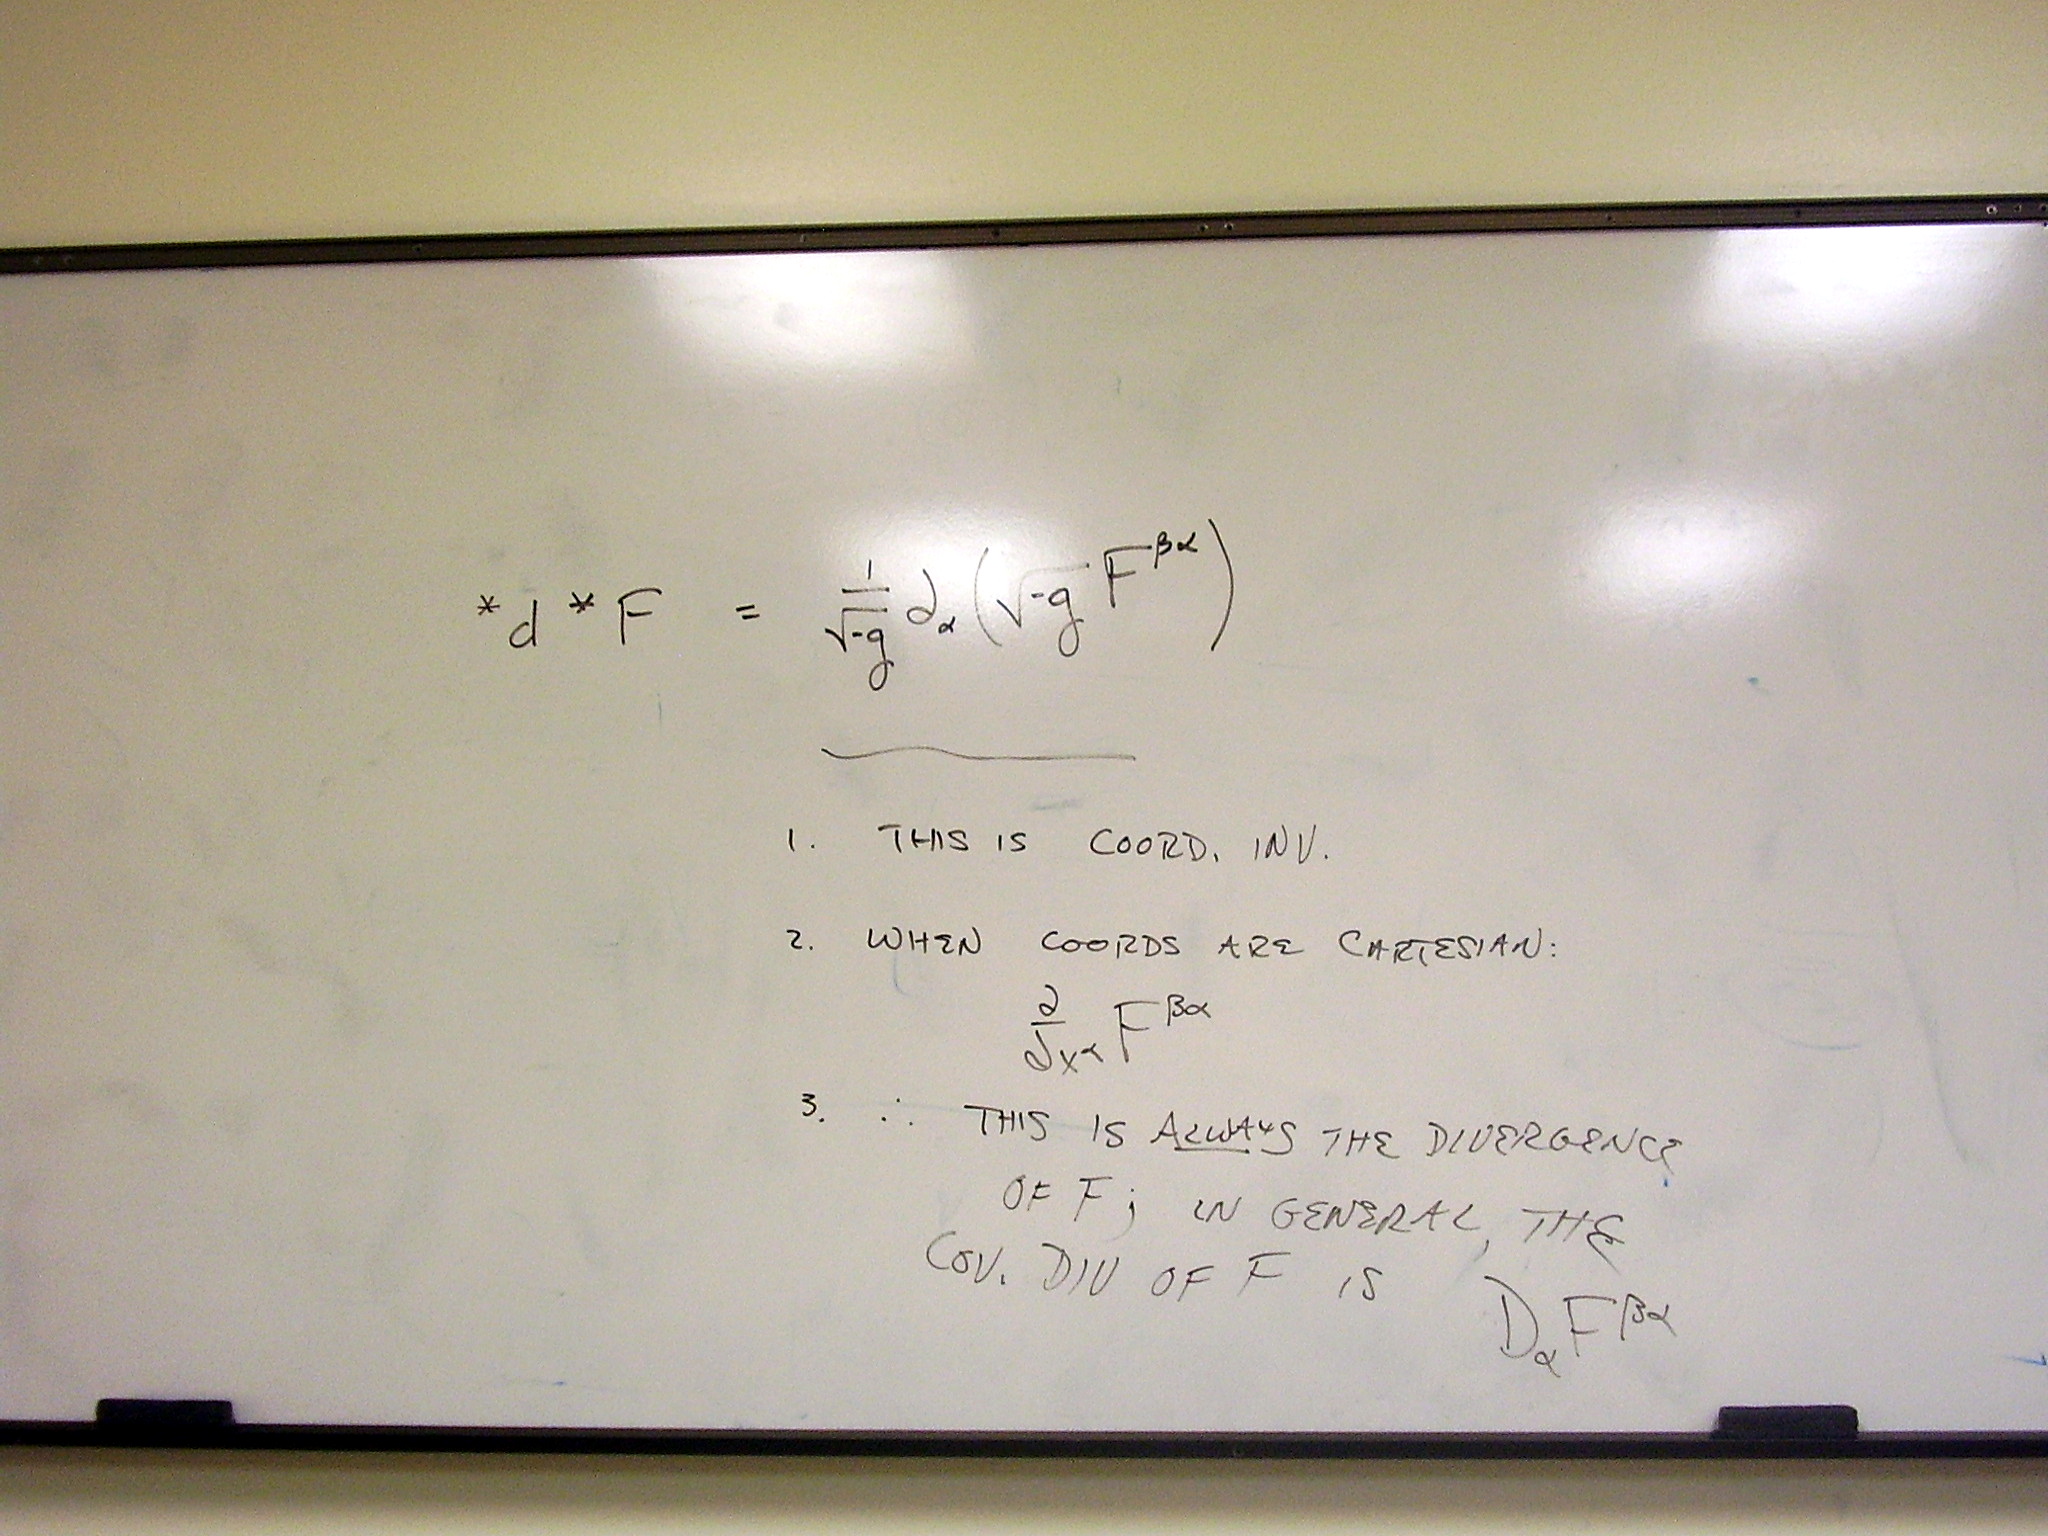 *d *F = 1/√-g ∂α (√-g F^βα)
1. THIS IS COORD. INV.
2. WHEN COORDS ARE CARTESIAN:
∂/∂x^α F^βα
3. ∴ THIS IS ALWAYS THE DIVERGENCE
OF F; IN GENERAL, THE
COV. DIV OF F IS D_α F^βα